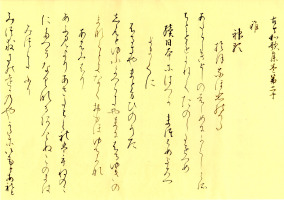 古今和歌集巻第二十
あたらしきとしのはしめにかくしこそ
ちとせをかねてたのしきをつめ
日本紀にはつかへまつらめよろつ
よまてに
ふるきやまとまひのうた
しもとゆふかつらきやまにふるゆきの
まなくときなくおもほゆるかな
あふみふり
あふみよりあさたちくれはうねのの
にたつそなくなるあけぬこのよは
みつくきふり
みつくきのをかのやかたにいもとあれと